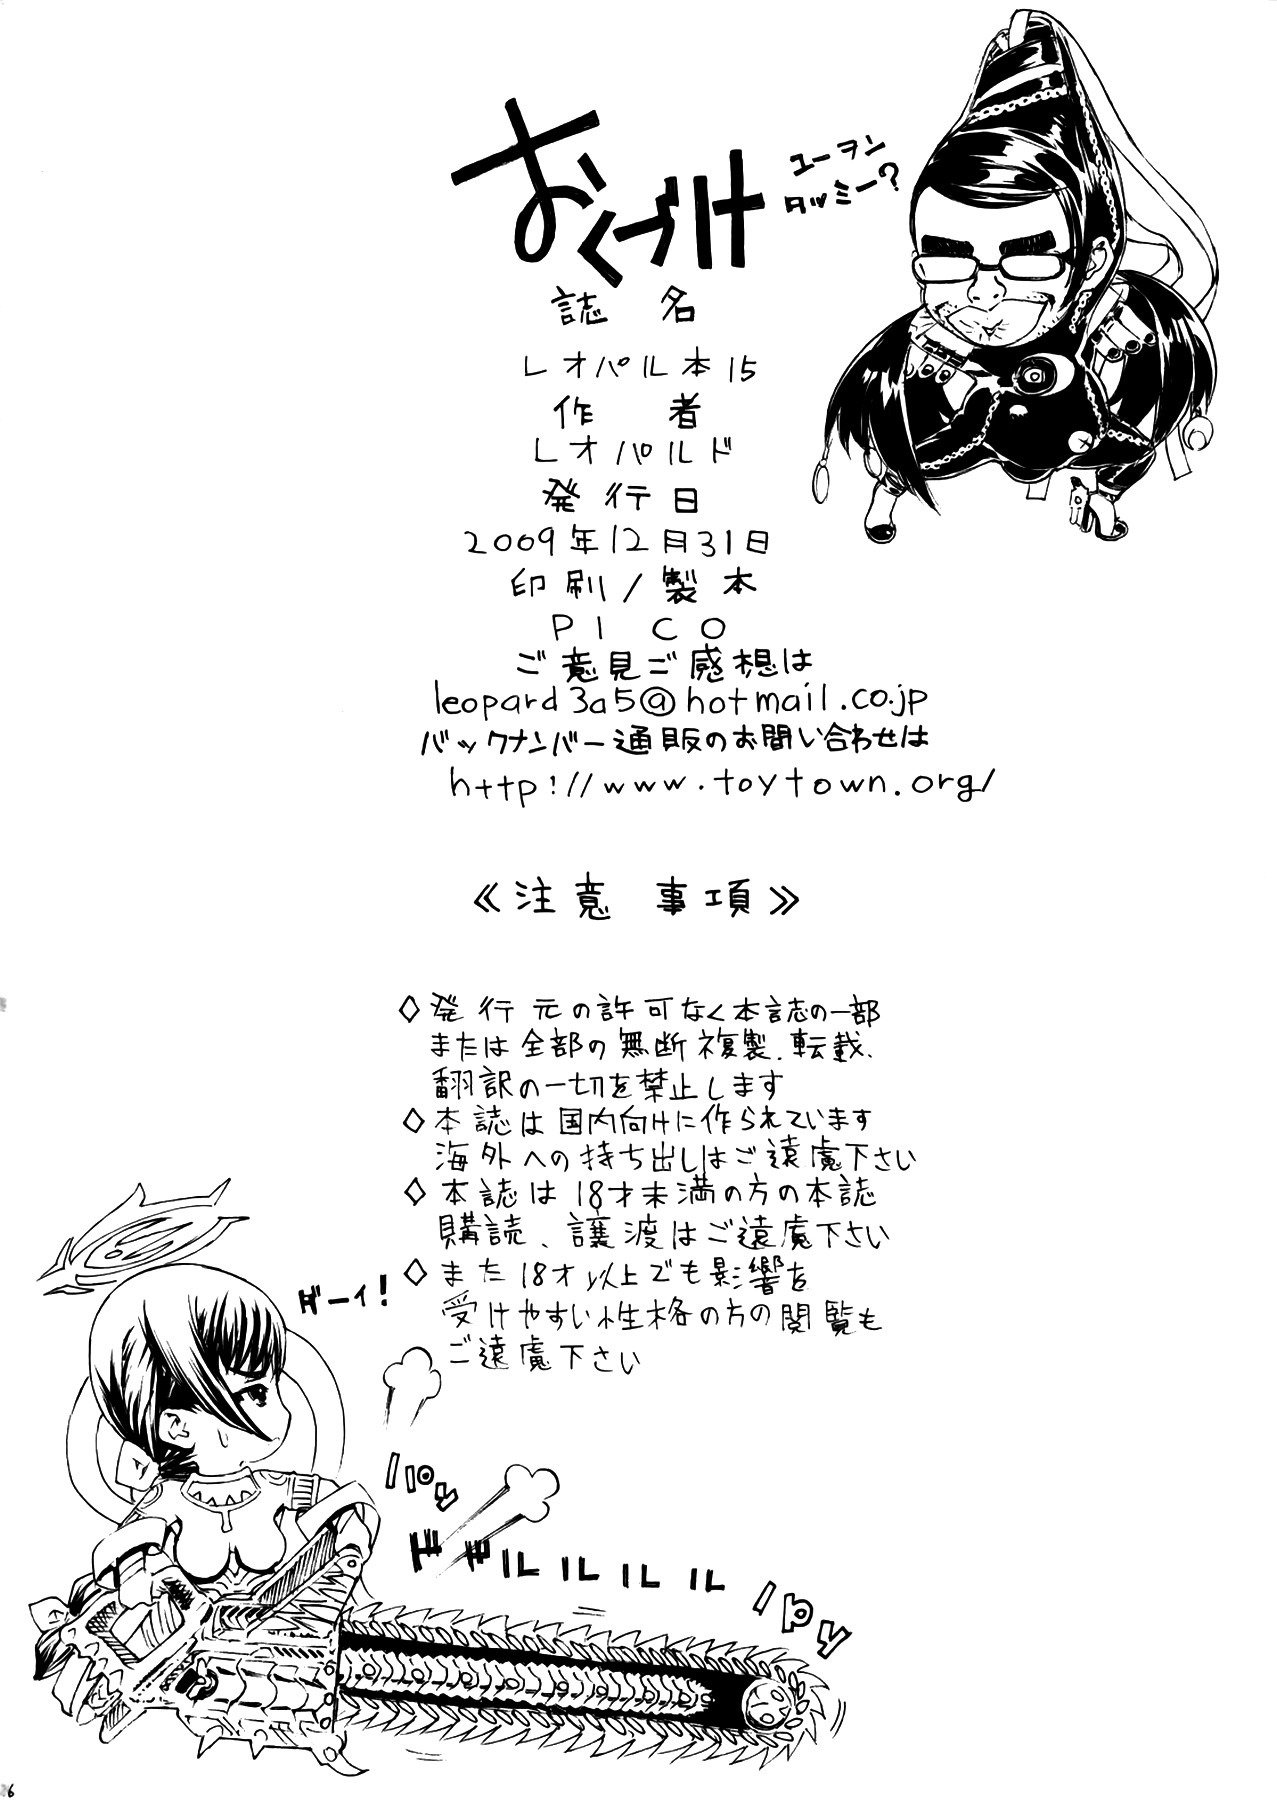 おくづけ
ユーヲン
タッミー?
誌名
レオパル本15
作者
レオパルド
発行日
2009年12月31日
印刷/製本
PICO
ご意見ご感想は
leopard3a5@hotmail.co.jp
バックナンバー通販のお問い合わせは
http://www.toytown.org/
《注意 事項》
◇発行元の許可なく本誌の一部
または全部の無断複製、転載、
翻訳の一切を禁止します
◇本誌は国内向けに作られています
海外への持ち出しはご遠慮下さい
◇本誌は18才未満の方の本誌
購読、譲渡はご遠慮下さい
◇また18才以上でも影響を
受けやすい性格の方の閲覧も
ご遠慮下さい
ダーイ!
パパッ
ドドルルルル
パパッ